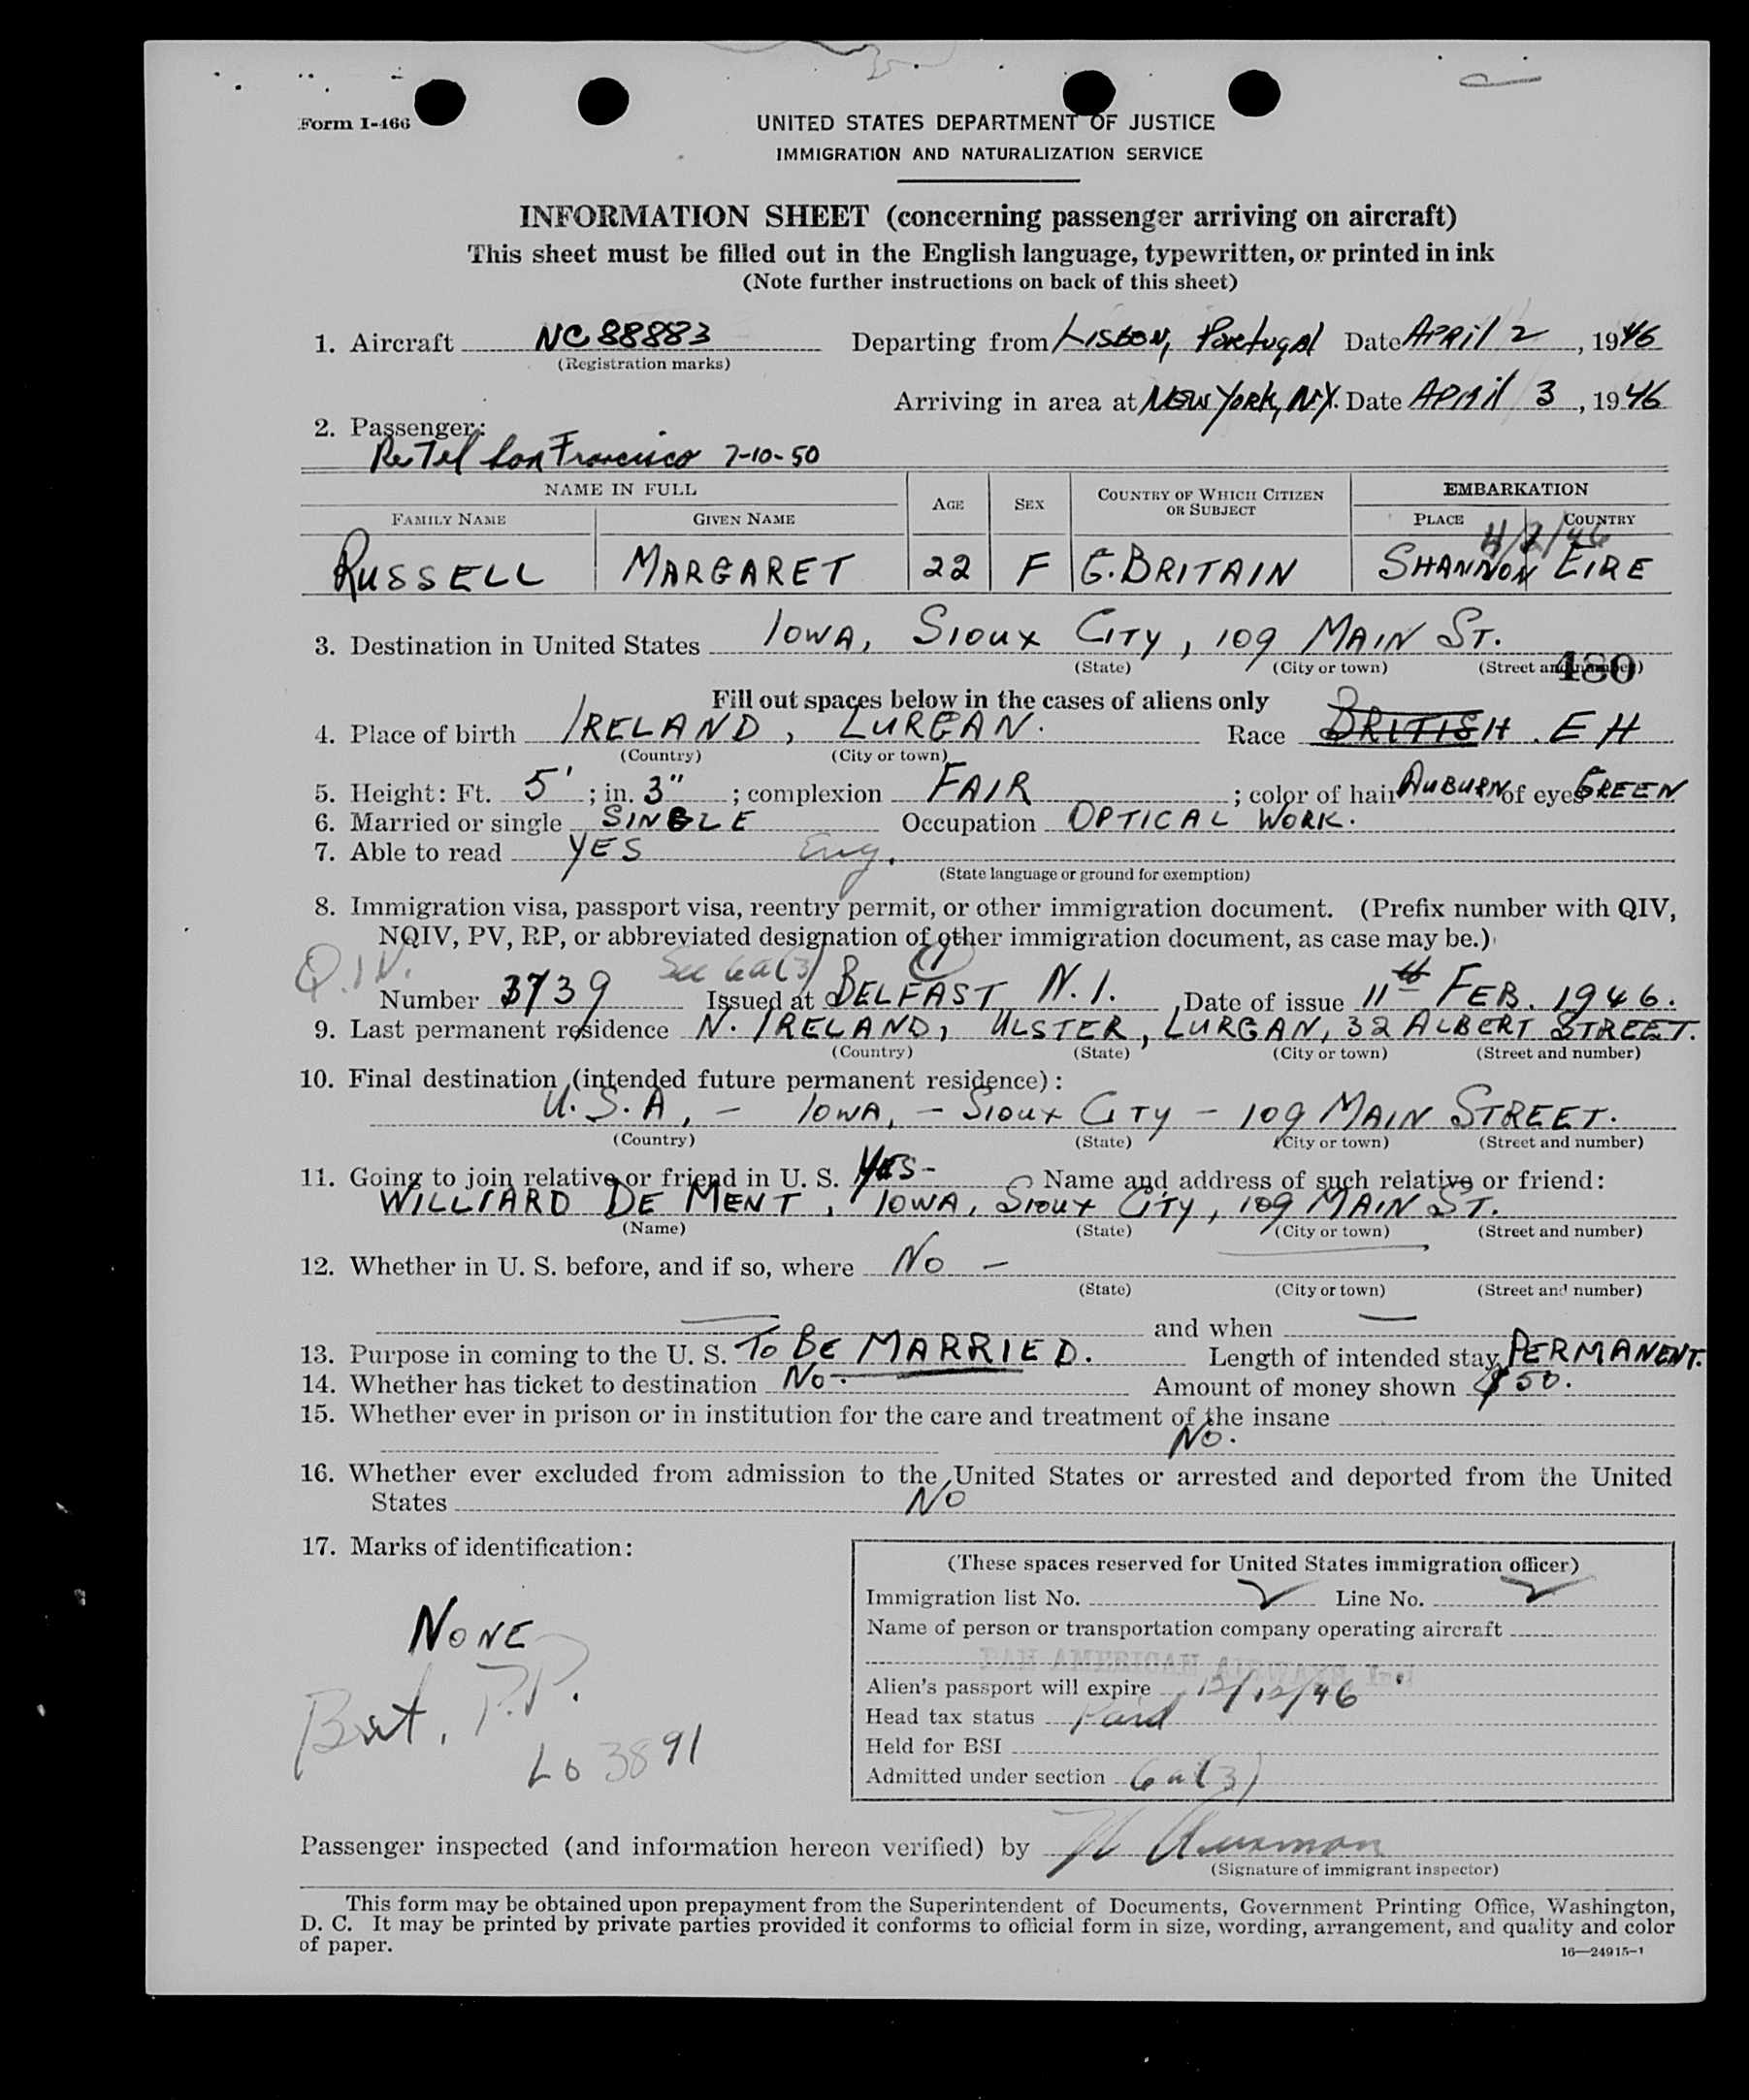 Form I-466
UNITED STATES DEPARTMENT OF JUSTICE
IMMIGRATION AND NATURALIZATION SERVICE
INFORMATION SHEET (concerning passenger arriving on aircraft)
This sheet must be filled out in the English language, typewritten, or printed in ink
(Note further instructions on back of this sheet)
1. Aircraft NC 88883 Departing from Lisbon, Portugal Date April 2, 1946
(Registration marks)
Arriving in area at New York, N.Y. Date April 3, 1946
2. Passenger:
Re Tel San Francisco 7-10-50
NAME IN FULL AGE SEX COUNTRY OF WHICH CITIZEN OR SUBJECT EMBARKATION
FAMILY NAME GIVEN NAME PLACE COUNTRY
4/2/46
RUSSELL MARGARET 22 F G. BRITAIN SHANNON EIRE
3. Destination in United States IOWA, SIOUX CITY, 109 MAIN ST.
(State) (City or town) (Street and number)
480
Fill out spaces below in the cases of aliens only
4. Place of birth IRELAND, LURGAN. Race BRITISH. EH
(Country) (City or town)
5. Height: Ft. 5'; in. 3"; complexion FAIR; color of hair AUBURN of eyes GREEN
6. Married or single SINGLE Occupation OPTICAL WORK.
7. Able to read YES Eng.
(State language or ground for exemption)
8. Immigration visa, passport visa, reentry permit, or other immigration document. (Prefix number with QIV,
NQIV, PV, RP, or abbreviated designation of other immigration document, as case may be.)
Q.I.V. Sec 6a(3)
Number 3739 Issued at BELFAST N.I. Date of issue 11th FEB. 1946.
9. Last permanent residence N. IRELAND, ULSTER, LURGAN, 32 ALBERT STREET.
(Country) (State) (City or town) (Street and number)
10. Final destination (intended future permanent residence):
U.S.A, - IOWA, - SIOUX CITY - 109 MAIN STREET.
(Country) (State) (City or town) (Street and number)
11. Going to join relative or friend in U. S. YES- Name and address of such relative or friend:
WILLIARD DE MENT, IOWA, SIOUX CITY, 109 MAIN ST.
(Name) (State) (City or town) (Street and number)
12. Whether in U. S. before, and if so, where NO -
(State) (City or town) (Street and number)
and when
13. Purpose in coming to the U. S. TO BE MARRIED. Length of intended stay PERMANENT.
14. Whether has ticket to destination NO. Amount of money shown $50.
15. Whether ever in prison or in institution for the care and treatment of the insane
NO.
16. Whether ever excluded from admission to the United States or arrested and deported from the United
States NO
17. Marks of identification:
NONE
Brit. P.P.
LO 3891
(These spaces reserved for United States immigration officer)
Immigration list No. 2 Line No. 2
Name of person or transportation company operating aircraft
Alien's passport will expire 12/12/46
Head tax status Paid
Held for BSI
Admitted under section 6a(3)
Passenger inspected (and information hereon verified) by
(Signature of immigrant inspector)
This form may be obtained upon prepayment from the Superintendent of Documents, Government Printing Office, Washington,
D. C. It may be printed by private parties provided it conforms to official form in size, wording, arrangement, and quality and color
of paper.
16—24915-1